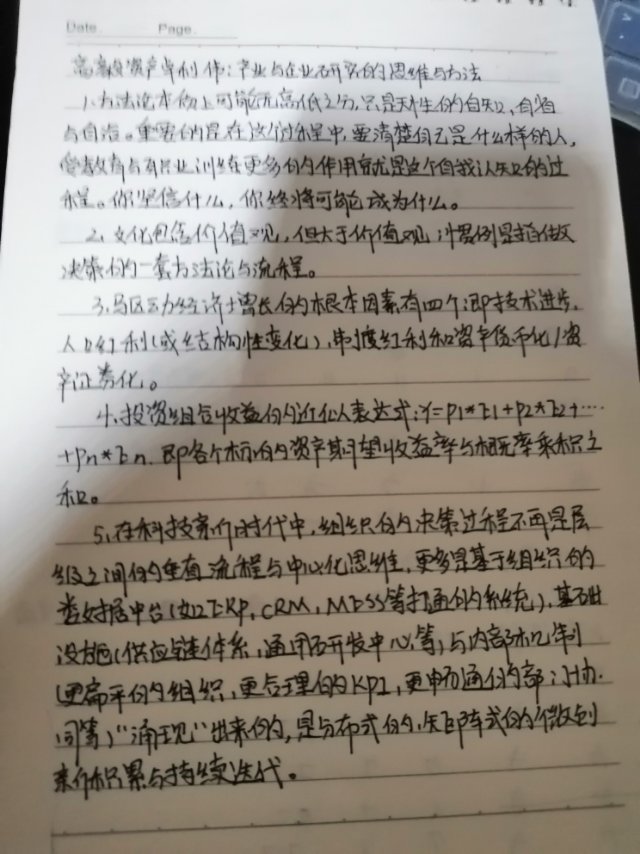 Date. Page.
资产与创伟：产业与企业研究的思维与方法
1.方法论本质上可能无高低之分，只是天生的自知、自省
与自治。重要的是在这个过程中，要清楚自己是什么样的人，
受教育与职业训练更多的作用就是这个自我认知的过
程。你坚信什么，你终将可能成为什么。
2.文化包含价值观，但大于价值观，惯例是指做
决策的一套方法论与流程。
3.驱动经济增长的根本因素有四个，即技术进步，
人口红利（或结构性变化），制度红利和资产货币化/资
产证券化。
4.投资组合收益的近似表达式：Y=P1*E1+P2*E2+…
+Pn*En.即各个标的的资产期望收益率与概率乘积之
和。
5.在科技新的时代中，组织的决策过程不再是层
级之间的垂直流程与中心化思维，更多是基于组织的
数据中台（如ERP，CRM，MESS等打通的系统），基础
设施（供应链体系，通用研发中心等）与内部机制
（更扁平的组织，更合理的KPI，更畅通的部门协
同等）“涌现”出来的，是分布式的，矩阵式的微创
新积累与持续迭代。